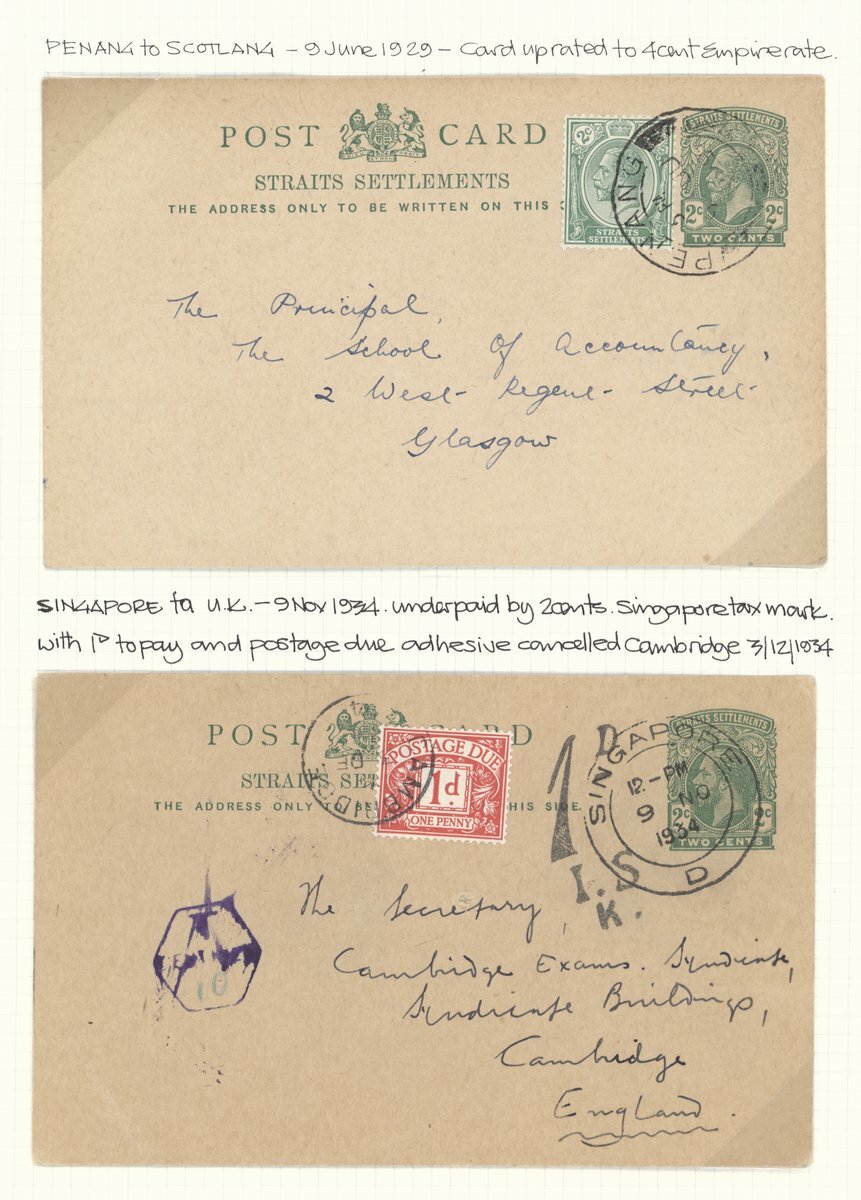 PENANG to SCOTLANG - 9 June 1929 - Card uprated to 4cent Empire rate.
POST CARD
STRAITS SETTLEMENTS
THE ADDRESS ONLY TO BE WRITTEN ON THIS
2c
STRAITS SETTLEMENTS
STRAITS SETTLEMENTS
2c 2c
TWO CENTS
PENANG
The Principal,
The School Of Accountancy,
2 West Regent Street
Glasgow
SINGAPORE to U.K. - 9 Nov 1934. underpaid by 2cents. Singapore tax mark.
with 1D to pay and postage due adhesive cancelled Cambridge 3/12/1934
POST CARD
STRAITS SET
THE ADDRESS ONLY TO BE THIS SIDE
POSTAGE DUE
1d.
ONE PENNY
AMBRIDGE
DE
1D
I.S
K.
SINGAPORE
12.-PM
9 NO
1934
D
STRAITS SETTLEMENTS
2c 2c
TWO CENTS
10
The Secretary,
Cambridge Exams. Syndicate,
Syndicate Buildings,
Cambridge
England.